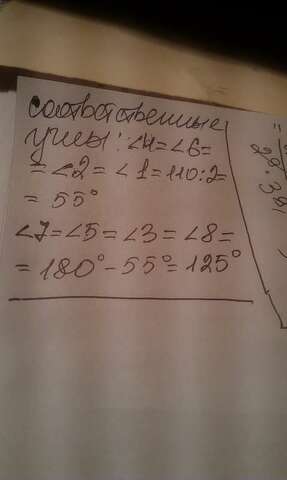 соответственные
углы: ∠4=∠6=
=∠2=∠1=110:2=
= 55°
∠7=∠5=∠3=∠8=
=180°-55°=125°